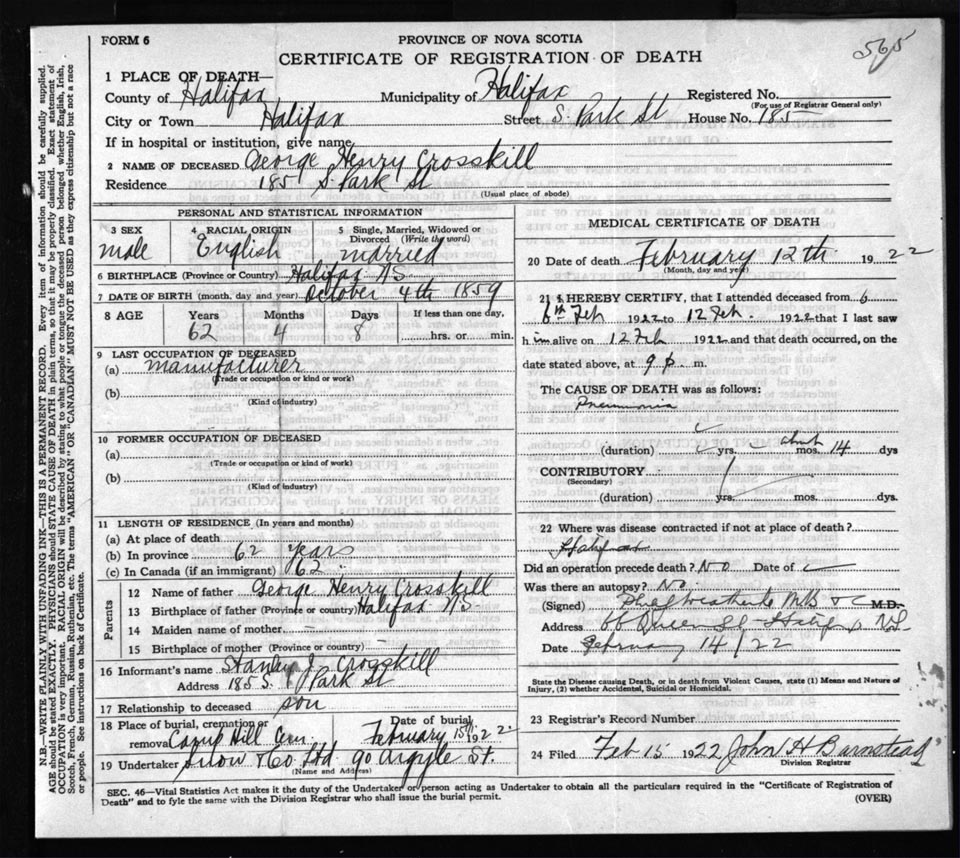 565
FORM 6
PROVINCE OF NOVA SCOTIA
CERTIFICATE OF REGISTRATION OF DEATH
1 PLACE OF DEATH—
County of Halifax Municipality of Halifax Registered No.
(For use of Registrar General only)
City or Town Halifax Street S. Park St House No. 185
If in hospital or institution, give name
2 NAME OF DECEASED George Henry Crosskill
Residence 185 S. Park St
(Usual place of abode)
PERSONAL AND STATISTICAL INFORMATION
3 SEX 4 RACIAL ORIGIN 5 Single, Married, Widowed or Divorced (Write the word)
male English married
6 BIRTHPLACE (Province or Country) Halifax NS
7 DATE OF BIRTH (month, day and year) October 4th 1859
8 AGE Years Months Days If less than one day,
62 4 8 hrs. or min.
9 LAST OCCUPATION OF DECEASED
(a) manufacturer
(Trade or occupation or kind of work)
(b)
(Kind of industry)
10 FORMER OCCUPATION OF DECEASED
(a)
(Trade or occupation or kind of work)
(b)
(Kind of industry)
11 LENGTH OF RESIDENCE (In years and months)
(a) At place of death
(b) In province 62 years
(c) In Canada (if an immigrant) 62
Parents
12 Name of father George Henry Crosskill
13 Birthplace of father (Province or country) Halifax NS
14 Maiden name of mother —
15 Birthplace of mother (Province or country) —
16 Informant's name Stanley J. Crosskill
Address 185 S. Park St
17 Relationship to deceased son
18 Place of burial, cremation or removal Camp Hill Cem Date of burial February 15th 1922
19 Undertaker Snow & Co. Ltd. 90 Argyle St.
(Name and Address)
MEDICAL CERTIFICATE OF DEATH
20 Date of death February 12th 1922
(Month, day and year)
21 I HEREBY CERTIFY, that I attended deceased from 6
6th Feb 1922 to 12 Feb. 1922 that I last saw
him alive on 12 Feb 1922 and that death occurred, on the
date stated above, at 9 p. m.
The CAUSE OF DEATH was as follows:
Pneumonia
(duration) yrs. mos. about 14 dys
CONTRIBUTORY
(Secondary)
(duration) yrs. mos. dys.
22 Where was disease contracted if not at place of death?
Halifax
Did an operation precede death? No Date of
Was there an autopsy? No.
(Signed) M.B. M.D.
Address 66 Queen St Halifax N.S.
Date February 14/22
State the Disease causing Death, or in death from Violent Causes, state (1) Means and Nature of
Injury, (2) whether Accidental, Suicidal or Homicidal.
23 Registrar's Record Number
24 Filed Feb 15 1922 John H Barnstead
Division Registrar
SEC. 46—Vital Statistics Act makes it the duty of the Undertaker or person acting as Undertaker to obtain all the particulars required in the "Certificate of Registration of
Death" and to fyle the same with the Division Registrar who shall issue the burial permit.
(OVER)
N.B.—WRITE PLAINLY WITH UNFADING INK—THIS IS A PERMANENT RECORD. Every item of information should be carefully supplied.
AGE should be stated EXACTLY. PHYSICIANS should STATE CAUSE OF DEATH in plain terms, so that it may be properly classified. Exact statement of
OCCUPATION is very important. RACIAL ORIGIN will be described by stating to what people or tongue the deceased person belonged whether English, Irish,
Scotch, French, German, Russian, Ruthenian, etc. The terms "AMERICAN" OR "CANADIAN" MUST NOT BE USED as they express citizenship but not a race
or people. See instructions on back of Certificate.